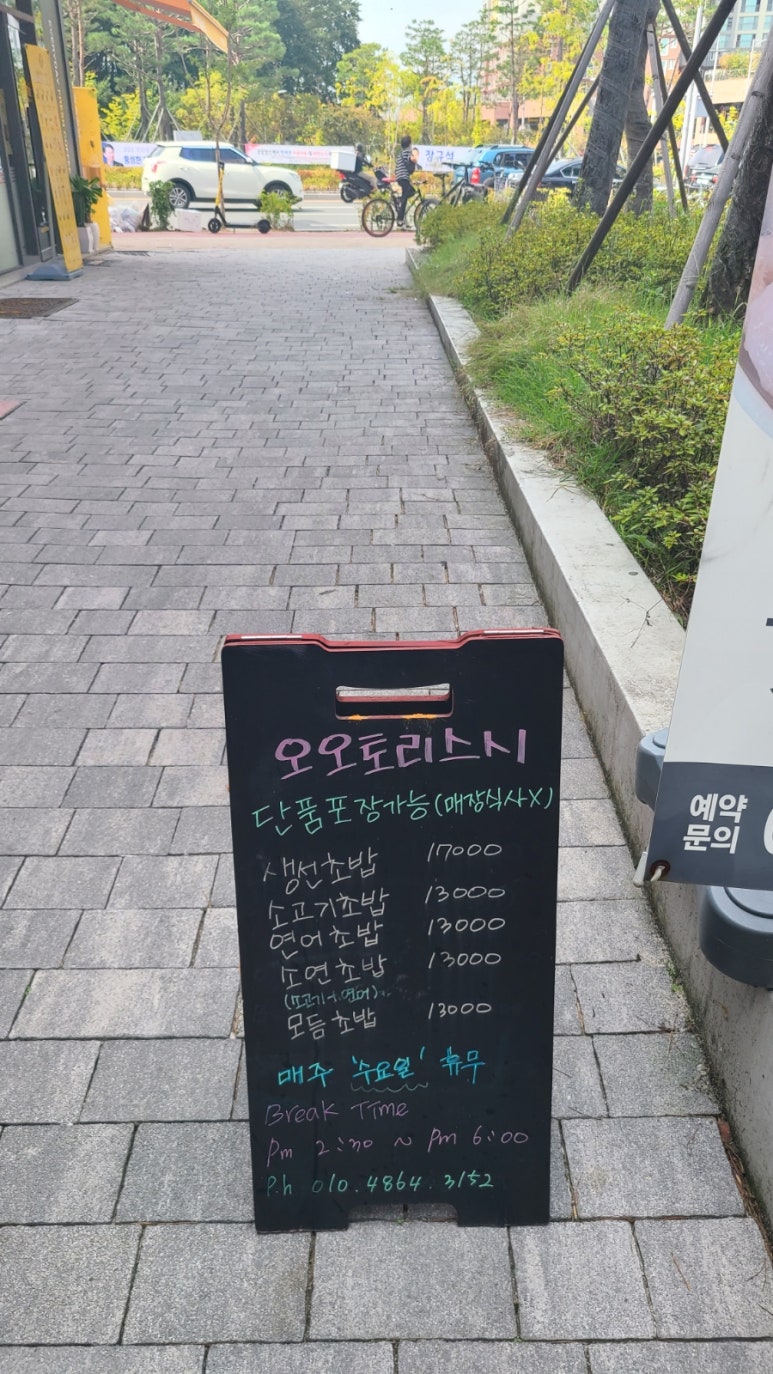 오오토리스시
단품포장가능(매장식사X)
생선초밥 17000
소고기초밥 13000
연어초밥 13000
소연초밥 13000
(소고기+연어)
모듬초밥 13000
매주 '수요일' 휴무
Break Time
Pm 2:30 ~ Pm 6:00
P.h 010.4864.3152
예약
문의